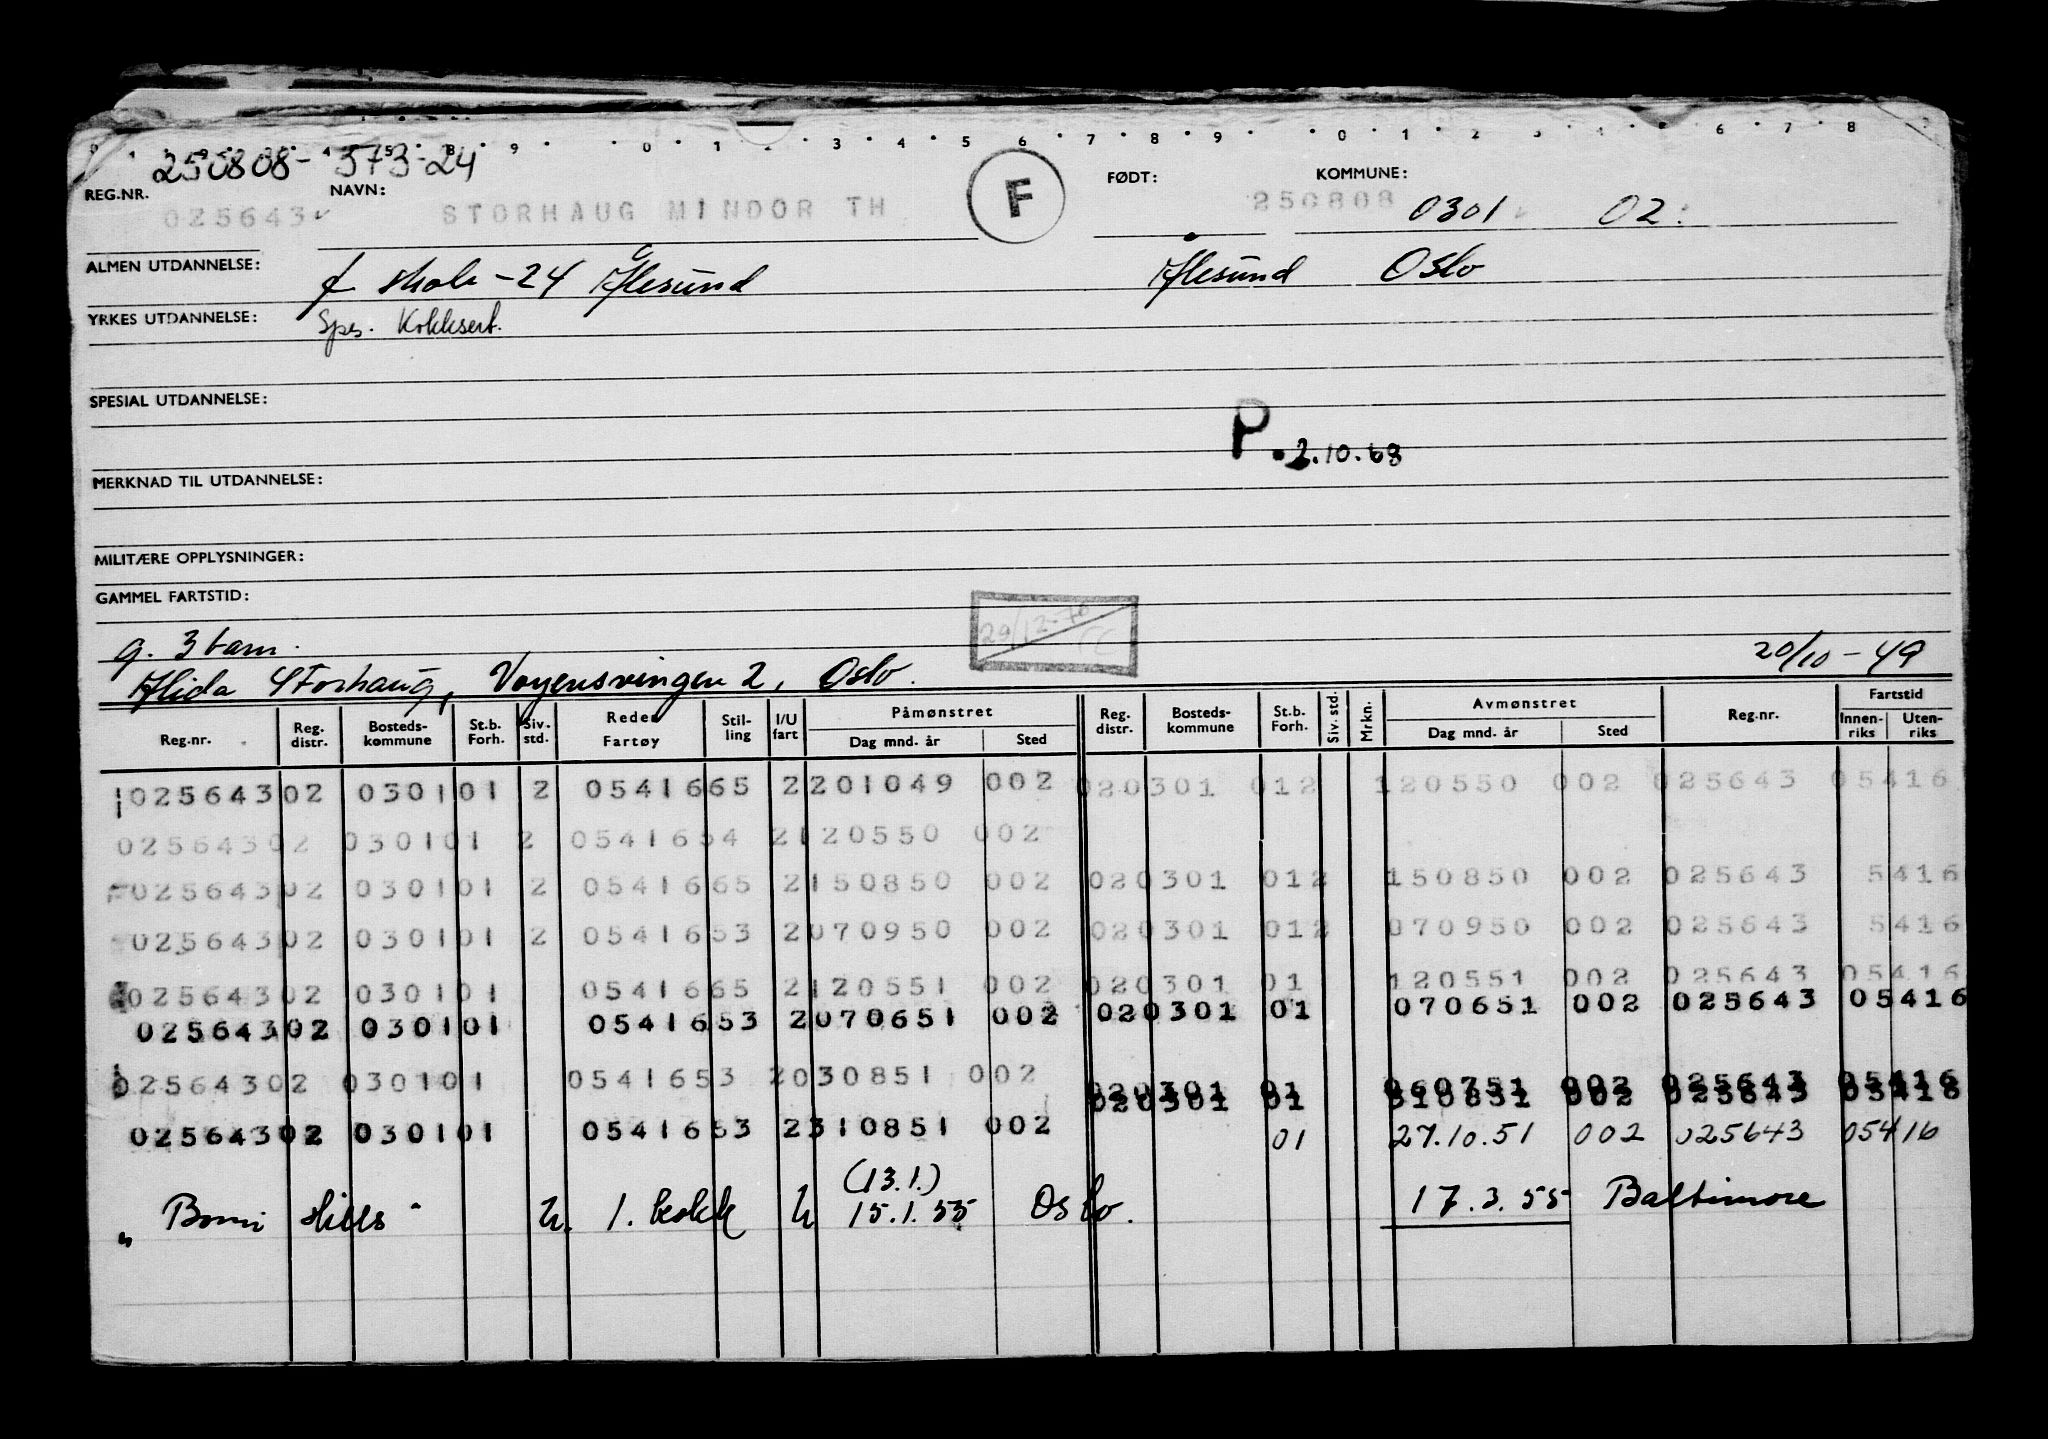 250808-37324
REG.NR. NAVN: FØDT: KOMMUNE:
025643 STORHAUG MINDOR TH F 250808 0301 02
ALMEN UTDANNELSE: f skole -24 Ålesund Ålesund Oslo
YRKES UTDANNELSE: Spes. Kokksert.
SPESIAL UTDANNELSE:
P. 2.10.68
MERKNAD TIL UTDANNELSE:
MILITÆRE OPPLYSNINGER:
GAMMEL FARTSTID:
29/12-70
g. 3 barn. 20/10-49
Alida Storhaug, Vøyensvingen 2, Oslo.
Reg.nr. Reg. distr. Bosteds- kommune St.b. Forh. Siv. std. Rederi Fartøy Stil- ling I/U fart Påmønstret Dag mnd. år Sted Reg. distr. Bosteds- kommune St.b. Forh. Siv. std. Mrkn. Avmønstret Dag mnd. år Sted Reg.nr. Fartstid Innen- riks Uten- riks
02564302 030101 2 0541665 2201049 002 020301 012 120550 002 025643 05416
02564302 030101 2 0541654 2120550 002
02564302 030101 2 0541665 2150850 002 020301 012 150850 002 025643 5416
02564302 030101 2 0541653 2070950 002 020301 012 070950 002 025643 5416
02564302 030101 0541665 2120551 002 020301 01 120551 002 025643 05416
02564302 030101 0541653 2070651 002 020301 01 070651 002 025643 05416
02564302 030101 0541653 2030851 002 020301 01 060751 002 025643 05416
020301 01 310851 002 025643 05416
02564302 030101 0541653 2310851 002 01 27.10.51 002 025643 05416
(13.1.)
"Bomi Hills" U. 1. kokk U 15.1.55 Oslo. 17.3.55 Baltimore